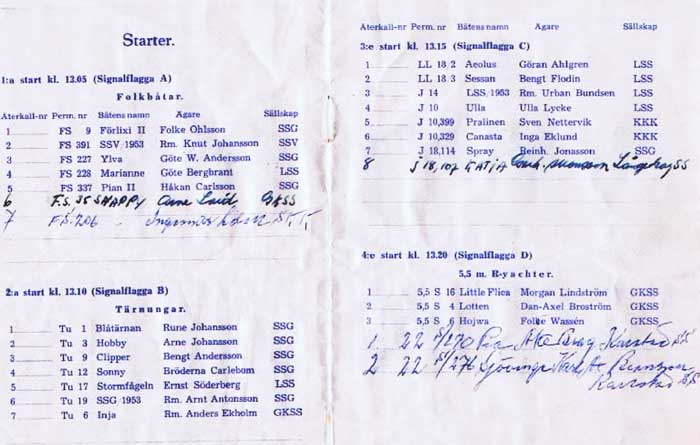 Starter.
1:a start kl. 13.05 (Signalflagga A)
Folkbåtar.
Återkall-nr Perm. nr Båtens namn Ägare Sällskap
1 FS 9 Förlixi II Folke Ohlsson SSG
2 FS 391 SSV/1953 Rm. Knut Johansson SSV
3 FS 227 Ylva Göte W. Andersson SSG
4 FS 228 Marianne Göte Bergbrant LSS
5 FS 337 Pian II Håkan Carlsson SSG
6 F.S. 35 SNAPPY Arne GKSS
7 F.S. 206 Ingemar
2:a start kl. 13.10 (Signalflagga B)
Tärnungar.
1 Tu 1 Blåtärnan Rune Johansson SSG
2 Tu 3 Hobby Arne Johansson SSG
3 Tu 9 Clipper Bengt Andersson SSG
4 Tu 12 Sonny Bröderna Carlebom SSG
5 Tu 17 Stormfågeln Ernst Söderberg LSS
6 Tu 19 SSG/1953 Rm. Arnt Antonsson SSG
7 Tu 6 Inja Rm. Anders Ekholm GKSS
Återkall-nr Perm. nr Båtens namn Ägare Sällskap
3:e start kl. 13.15 (Signalflagga C)
1 LL 18 2 Aeolus Göran Ahlgren LSS
2 LL 18 3 Sessan Bengt Flodin LSS
3 J 14 LSS/1953 Rm. Urban Bundsen LSS
4 J 10 Ulla Ulla Lycke LSS
5 J 10,399 Pralinen Sven Nettervik KKK
6 J 10,329 Canasta Inga Eklund KKK
7 J 18,114 Spray Reinh. Jonasson SSG
8 J 18,107 KATJA
4:e start kl. 13.20 (Signalflagga D)
5,5 m. R-yachter.
1 5,5 S 16 Little Flica Morgan Lindström GKSS
2 5,5 S 4 Lotten Dan-Axel Broström GKSS
3 5,5 S 6 Hojwa Folke Wassén GKSS
1 22 S/270 Åke Brag Karlstad SS
2 22 S/276 Karlstad SS